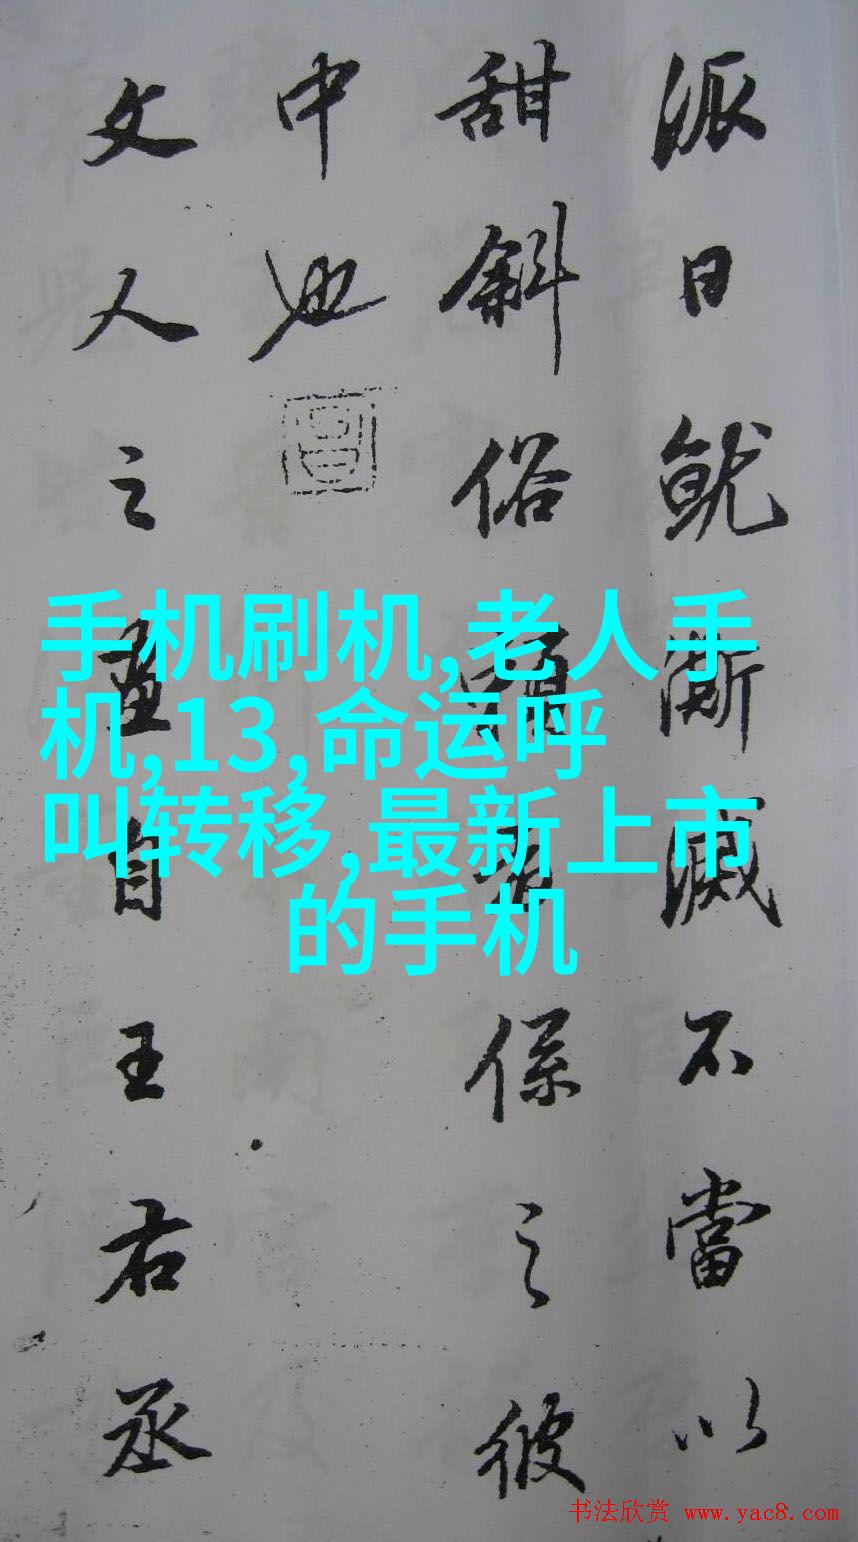 派日就澌滅不當以
甜斜俗係之彼
中也
文人之畫自王右丞
手机刷机,老人手
机,13,命运呼
叫转移,最新上市
的手机
书法欣赏 www.yac8.com